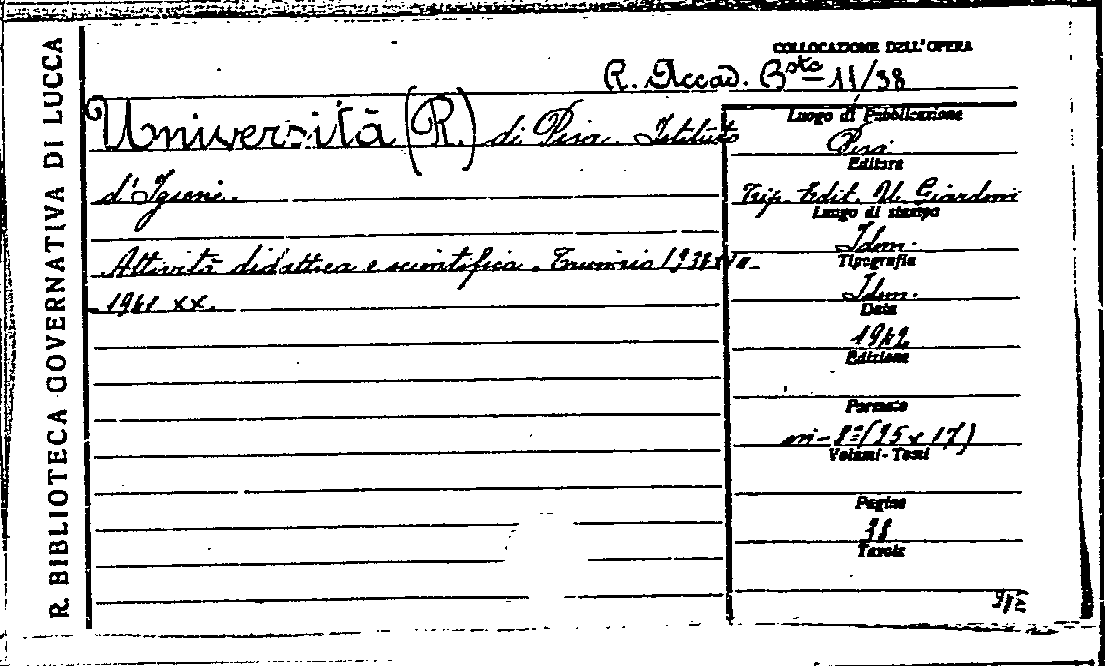 R. BIBLIOTECA GOVERNATIVA DI LUCCA
COLLOCAZIONE DELL'OPERA
R. Accad. Bsta 11/38
Università (R.) di Pisa. Istituto
d'Igiene.
Attività didattica e scientifica. Triennio 1938
1941 XX.
Luogo di Pubblicazione
Pisa
Editore
Tip. Edit. U. Giardini
Luogo di stampa
Idem.
Tipografia
Idem.
Data
1942
Edizione
Formato
in-8º (25 x 17)
Volumi-Tomi
Pagine
38
Tavole